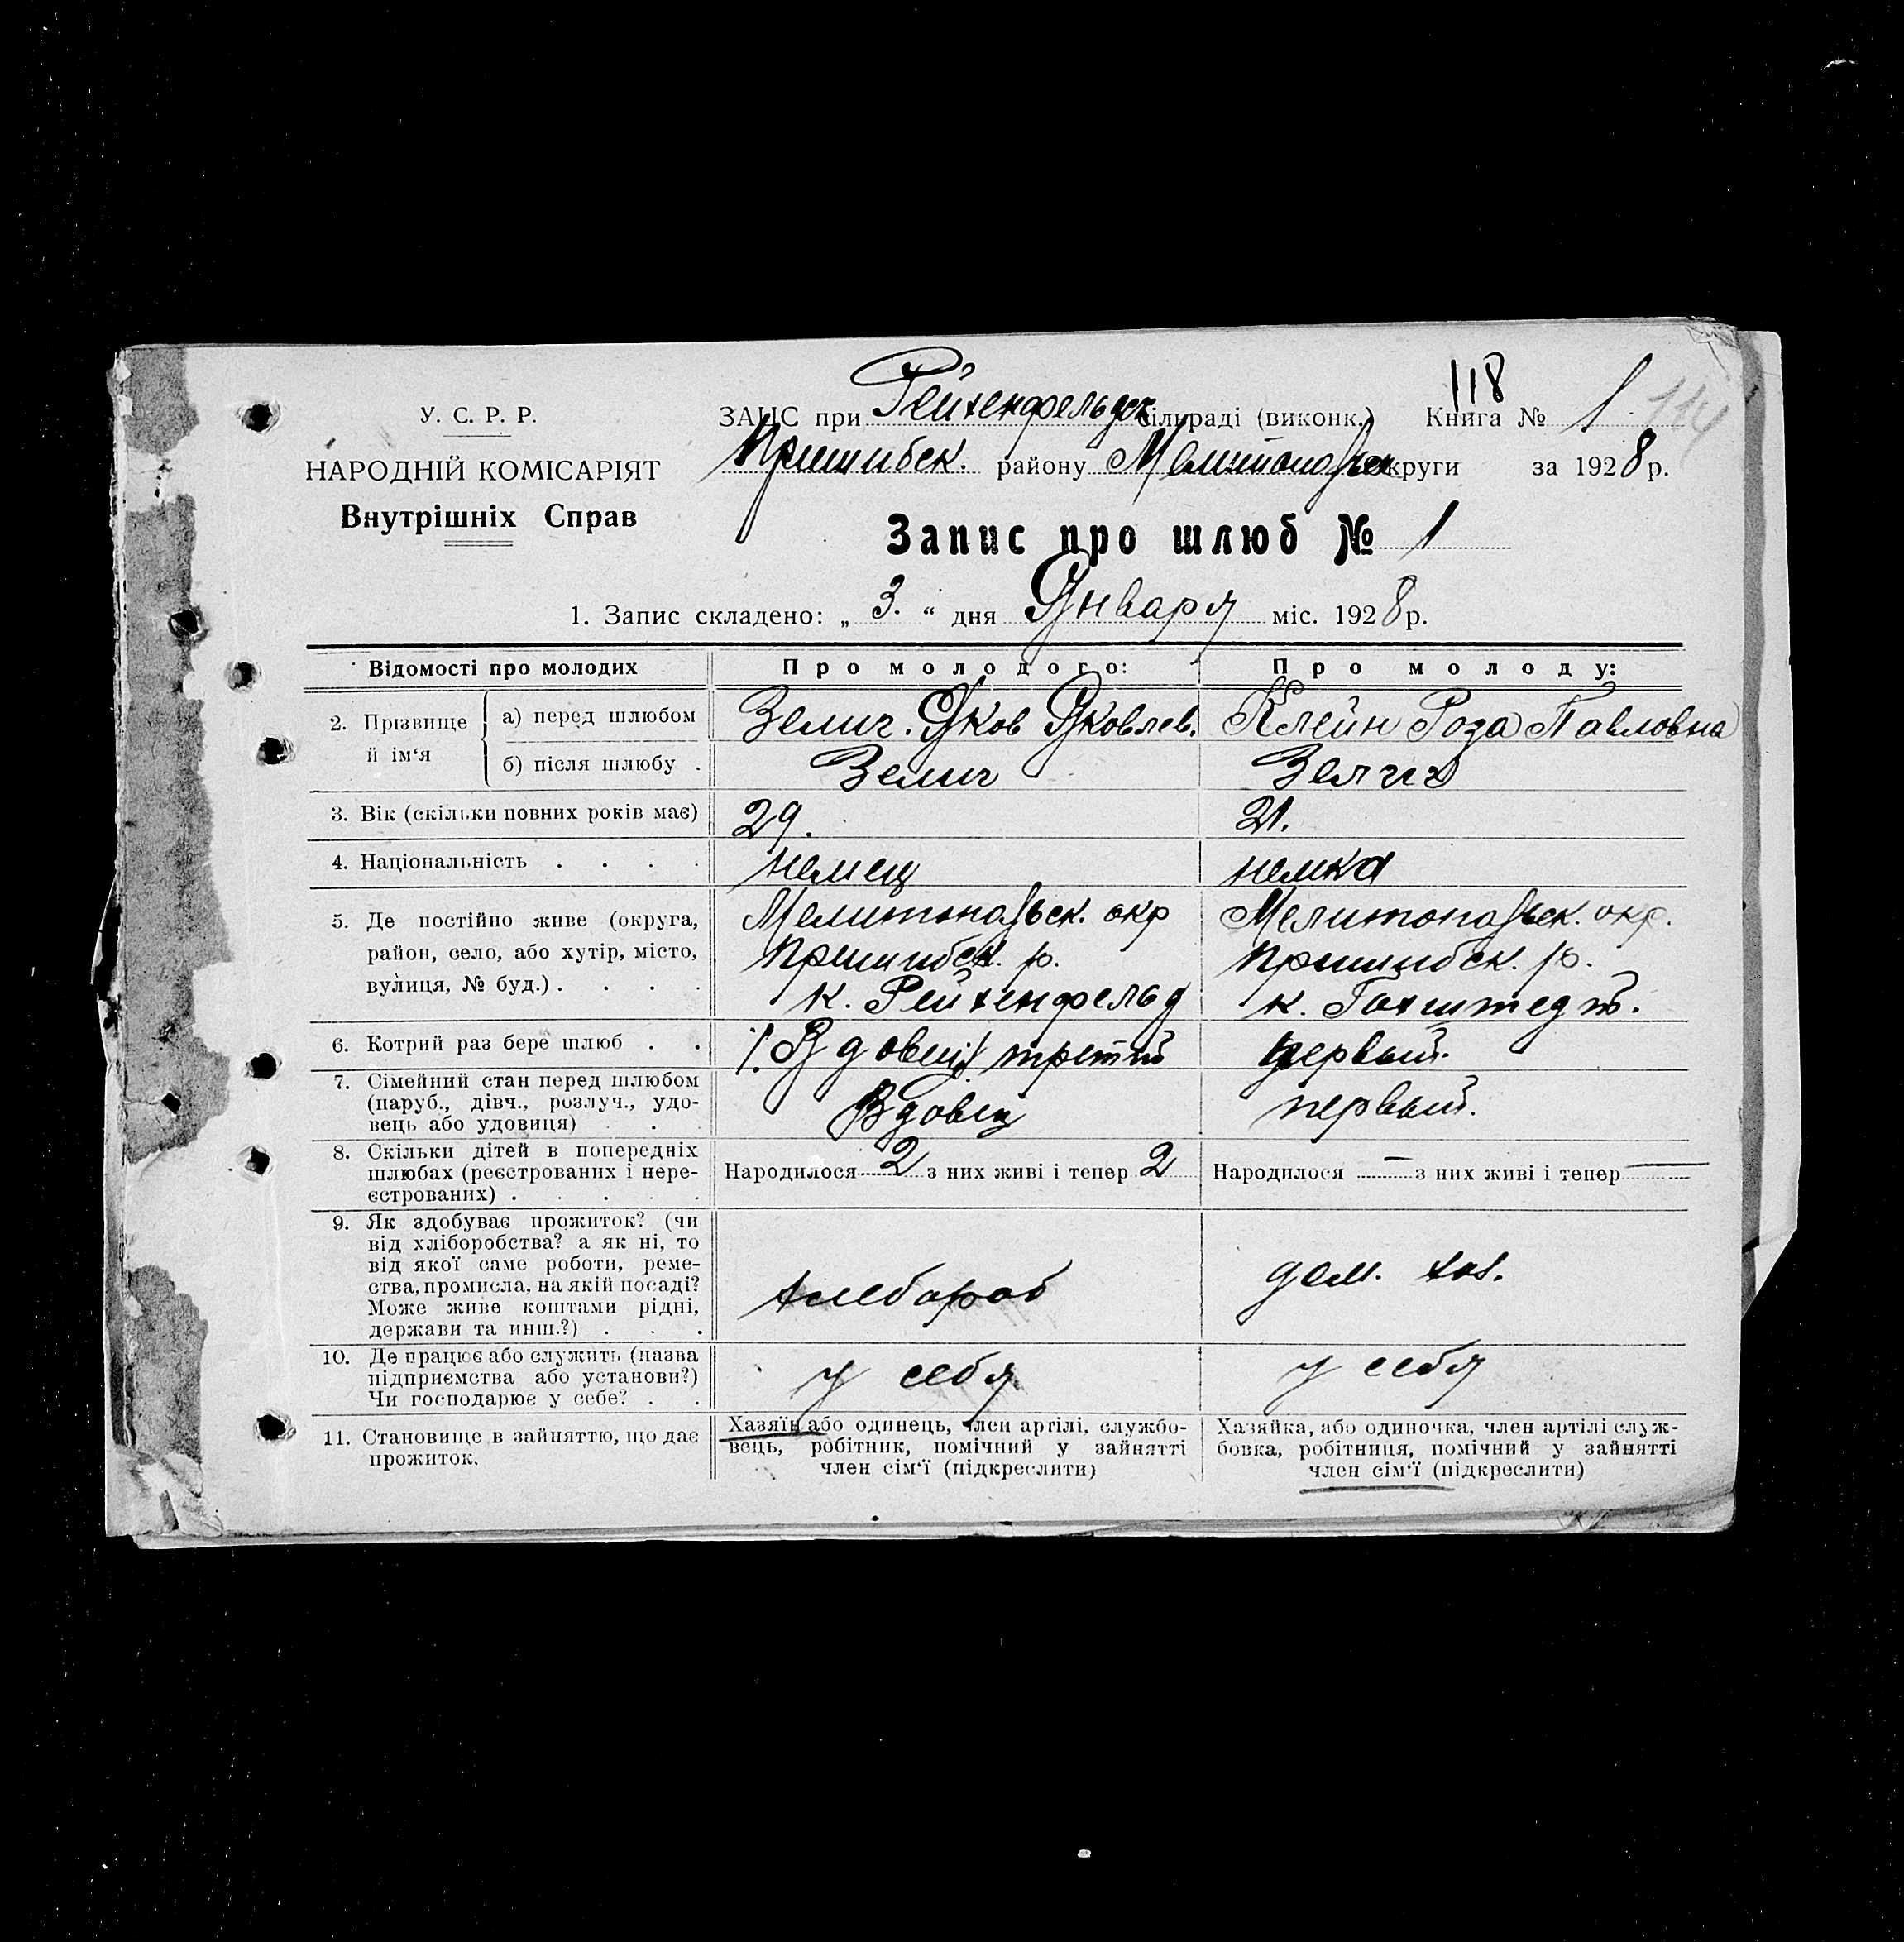 118
У. С. Р. Р.
ЗАГС при Рейхенфельдск. сільраді (виконк.) Книга № 1 114
НАРОДНІЙ КОМІСАРІЯТ
Пришибск. району Мелитопольск округи за 1928 р.
Внутрішніх Справ
Запис про шлюб № 1
1. Запис складено: „ 3. “ дня Января міс. 1928 р.
Відомості про молодих
Про молодого:
Про молоду:
2. Прізвище й ім‘я
а) перед шлюбом
Зелич. Яков Яковлев.
Клейн Роза Павловна
б) після шлюбу .
Зелич
Зелич
3. Вік (скільки повних років має)
29.
21.
4. Національність . . . .
немец
немка
5. Де постійно живе (округа,
район, село, або хутір, місто,
вулиця, № буд.) . . . .
Мелитопольск. окр
Пришибск. р.
к. Рейхенфельд
Мелитопольск. окр.
Пришибск. р.
к. Гохштедт.
6. Котрий раз бере шлюб . .
Вдовец третий
первый.
7. Сімейний стан перед шлюбом
(паруб., дівч., розлуч., удо-
вець або удовиця) . . .
Вдовец
первый.
8. Скільки дітей в попередніх
шлюбах (реєстрованих і нере-
єстрованих) . . . . .
Народилося 2 з них живі і тепер 2
Народилося — з них живі і тепер —
9. Як здобуває прожиток? (чи
від хліборобства? а як ні, то
від якої саме роботи, реме-
ства, промисла, на якій посаді?
Може живе коштами рідні,
держави та инш.?) . . .
хлебороб
дом. хоз.
10. Де працює або служить (назва
підприємства або установи?)
Чи господарює у себе? . .
у себя
у себя
11. Становище в зайняттю, що дає
прожиток.
Хазяїн або одинець, член артілі, службо-
вець, робітник, помічний у зайнятті
член сім‘ї (підкреслити)
Хазяйка, або одиночка, член артілі служ-
бовка, робітниця, помічний у зайнятті
член сім‘ї (підкреслити)